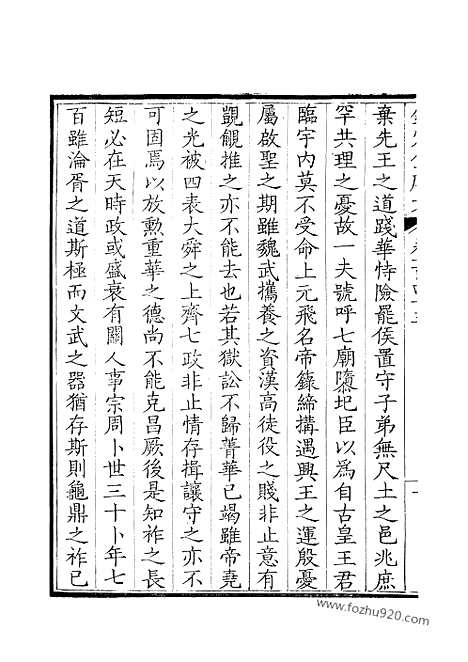 棄先王之道踐華恃險罷侯置守子弟無尺土之邑兆庶
罕共理之憂故一夫號呼七廟隳圮臣以爲自古皇王君
臨宇内莫不受命上元飛名帝籙締搆遇興王之運殷憂
屬啟聖之期雖魏武攜養之資漢高徒役之賤非止意有
覬覦推之亦不能去也若其獄訟不歸菁華已竭雖帝堯
之光被四表大舜之上齊七政非止情存揖讓守之亦不
可固焉以放勲重華之德尚不能克昌厥後是知祚之長
短必在天時政或盛衰有關人事宗周卜世三十卜年七
百雖淪胥之道斯極而文武之器猶存斯則龜鼎之祚已
www.fozhu920.com